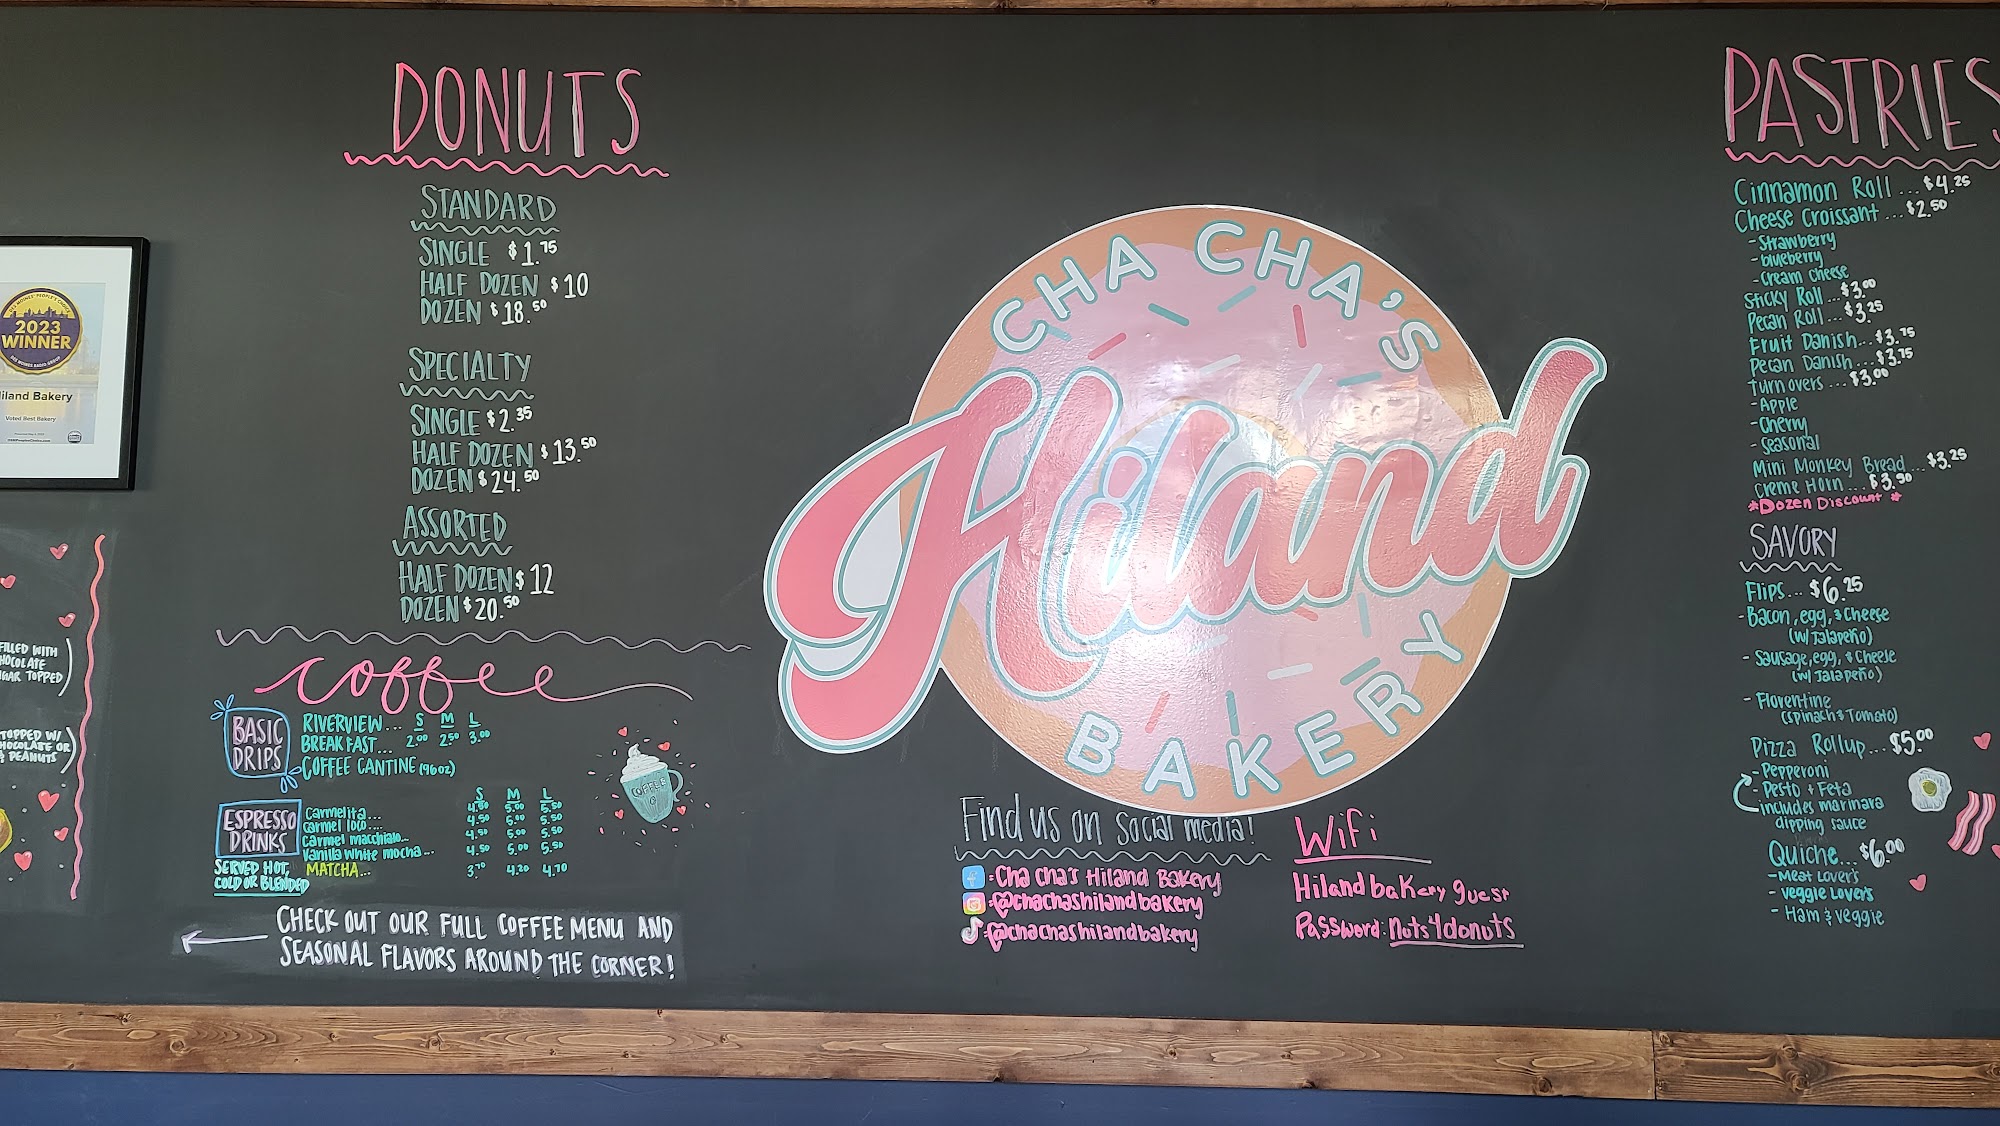 DONUTS
STANDARD
SINGLE $1.75
HALF DOZEN $10
DOZEN $18.50
SPECIALTY
SINGLE $2.35
HALF DOZEN $13.50
DOZEN $24.50
ASSORTED
HALF DOZEN $12
DOZEN $20.50
2023
WINNER
iland Bakery
Voted Best Bakery
FILLED WITH
HOCOLATE
GAR TOPPED)
TOPPED W/
HOCOLATE OR
& PEANUTS)
coffee
BASIC
DRIPS
S M L
RIVERVIEW...
BREAKFAST... 2.00 2.50 3.00
COFFEE CANTINE (96oz)
ESPRESSO
DRINKS
SERVED HOT,
COLD OR BLENDED
S M L
Carmelita... 4.50 5.00 5.50
Carmel loco.... 4.50 5.00 5.50
Carmel macchiato... 4.50 5.00 5.50
Vanilla white mocha... 4.50 5.00 5.50
MATCHA... 3.70 4.20 4.70
COFFEE
CHECK OUT OUR FULL COFFEE MENU AND
SEASONAL FLAVORS AROUND THE CORNER!
CHA CHA'S
Hiland
BAKERY
Find us on social media!
: Cha cha's Hiland Bakery
: @chachashilandbakery
: @chachashilandbakery
WiFi
Hilandbakery guest
Password: nuts4donuts
PASTRIES
Cinnamon Roll ... $4.25
Cheese Croissant ... $2.50
- Strawberry
- blueberry
- cream cheese
Sticky Roll ... $3.00
Pecan Roll ... $3.25
Fruit Danish... $3.75
Pecan Danish ... $3.75
Turnovers ... $3.00
- Apple
- Cherry
- Seasonal
Mini Monkey Bread ... $3.25
Creme Horn ... $3.50
*Dozen Discount *
SAVORY
Flips... $6.25
- Bacon, egg, & Cheese
(w/ Jalapeño)
- Sausage, egg, & Cheese
(w/ Jalapeño)
- Florentine
(spinach & Tomato)
Pizza Rollup... $5.00
- Pepperoni
- Pesto + Feta
includes marinara
dipping sauce
Quiche... $6.00
- Meat Lover's
- Veggie Lovers
- Ham & veggie